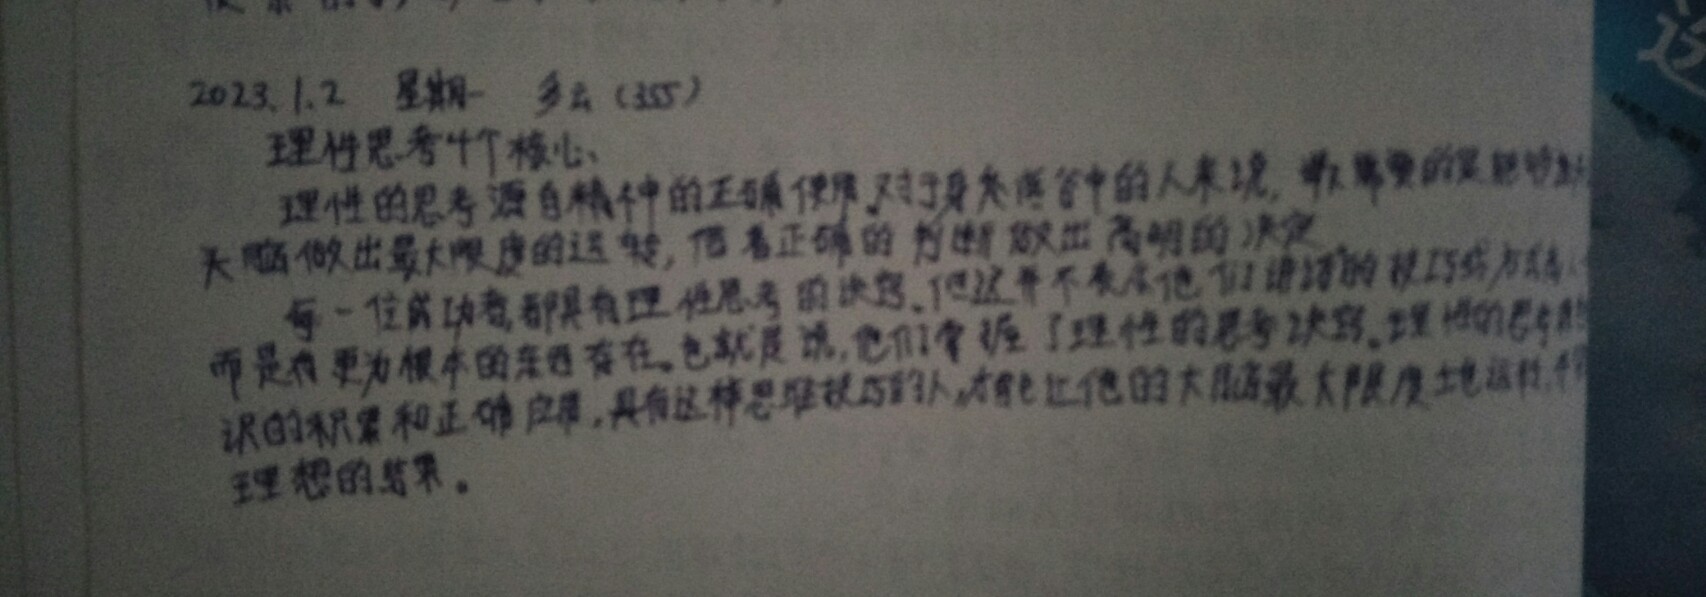 2023.1.2 星期一 多云（355）
理性思考4个核心、
理性的思考源自精神的正确使用。对于身处逆谷中的人来说，最需要的是能够
头脑做出最大限度的运转，借着正确的判断做出高明的决定
每一位成功者，都具有理性思考的诀窍。但这并不表示他们所谓的技巧或方法
而是有更为根本的东西存在。也就是说，他们掌握了理性的思考诀窍。理性的思考
识的积累和正确应用，具有这种思维技巧的人，才能让他的大脑最大限度地运转，
理想的结果。
这